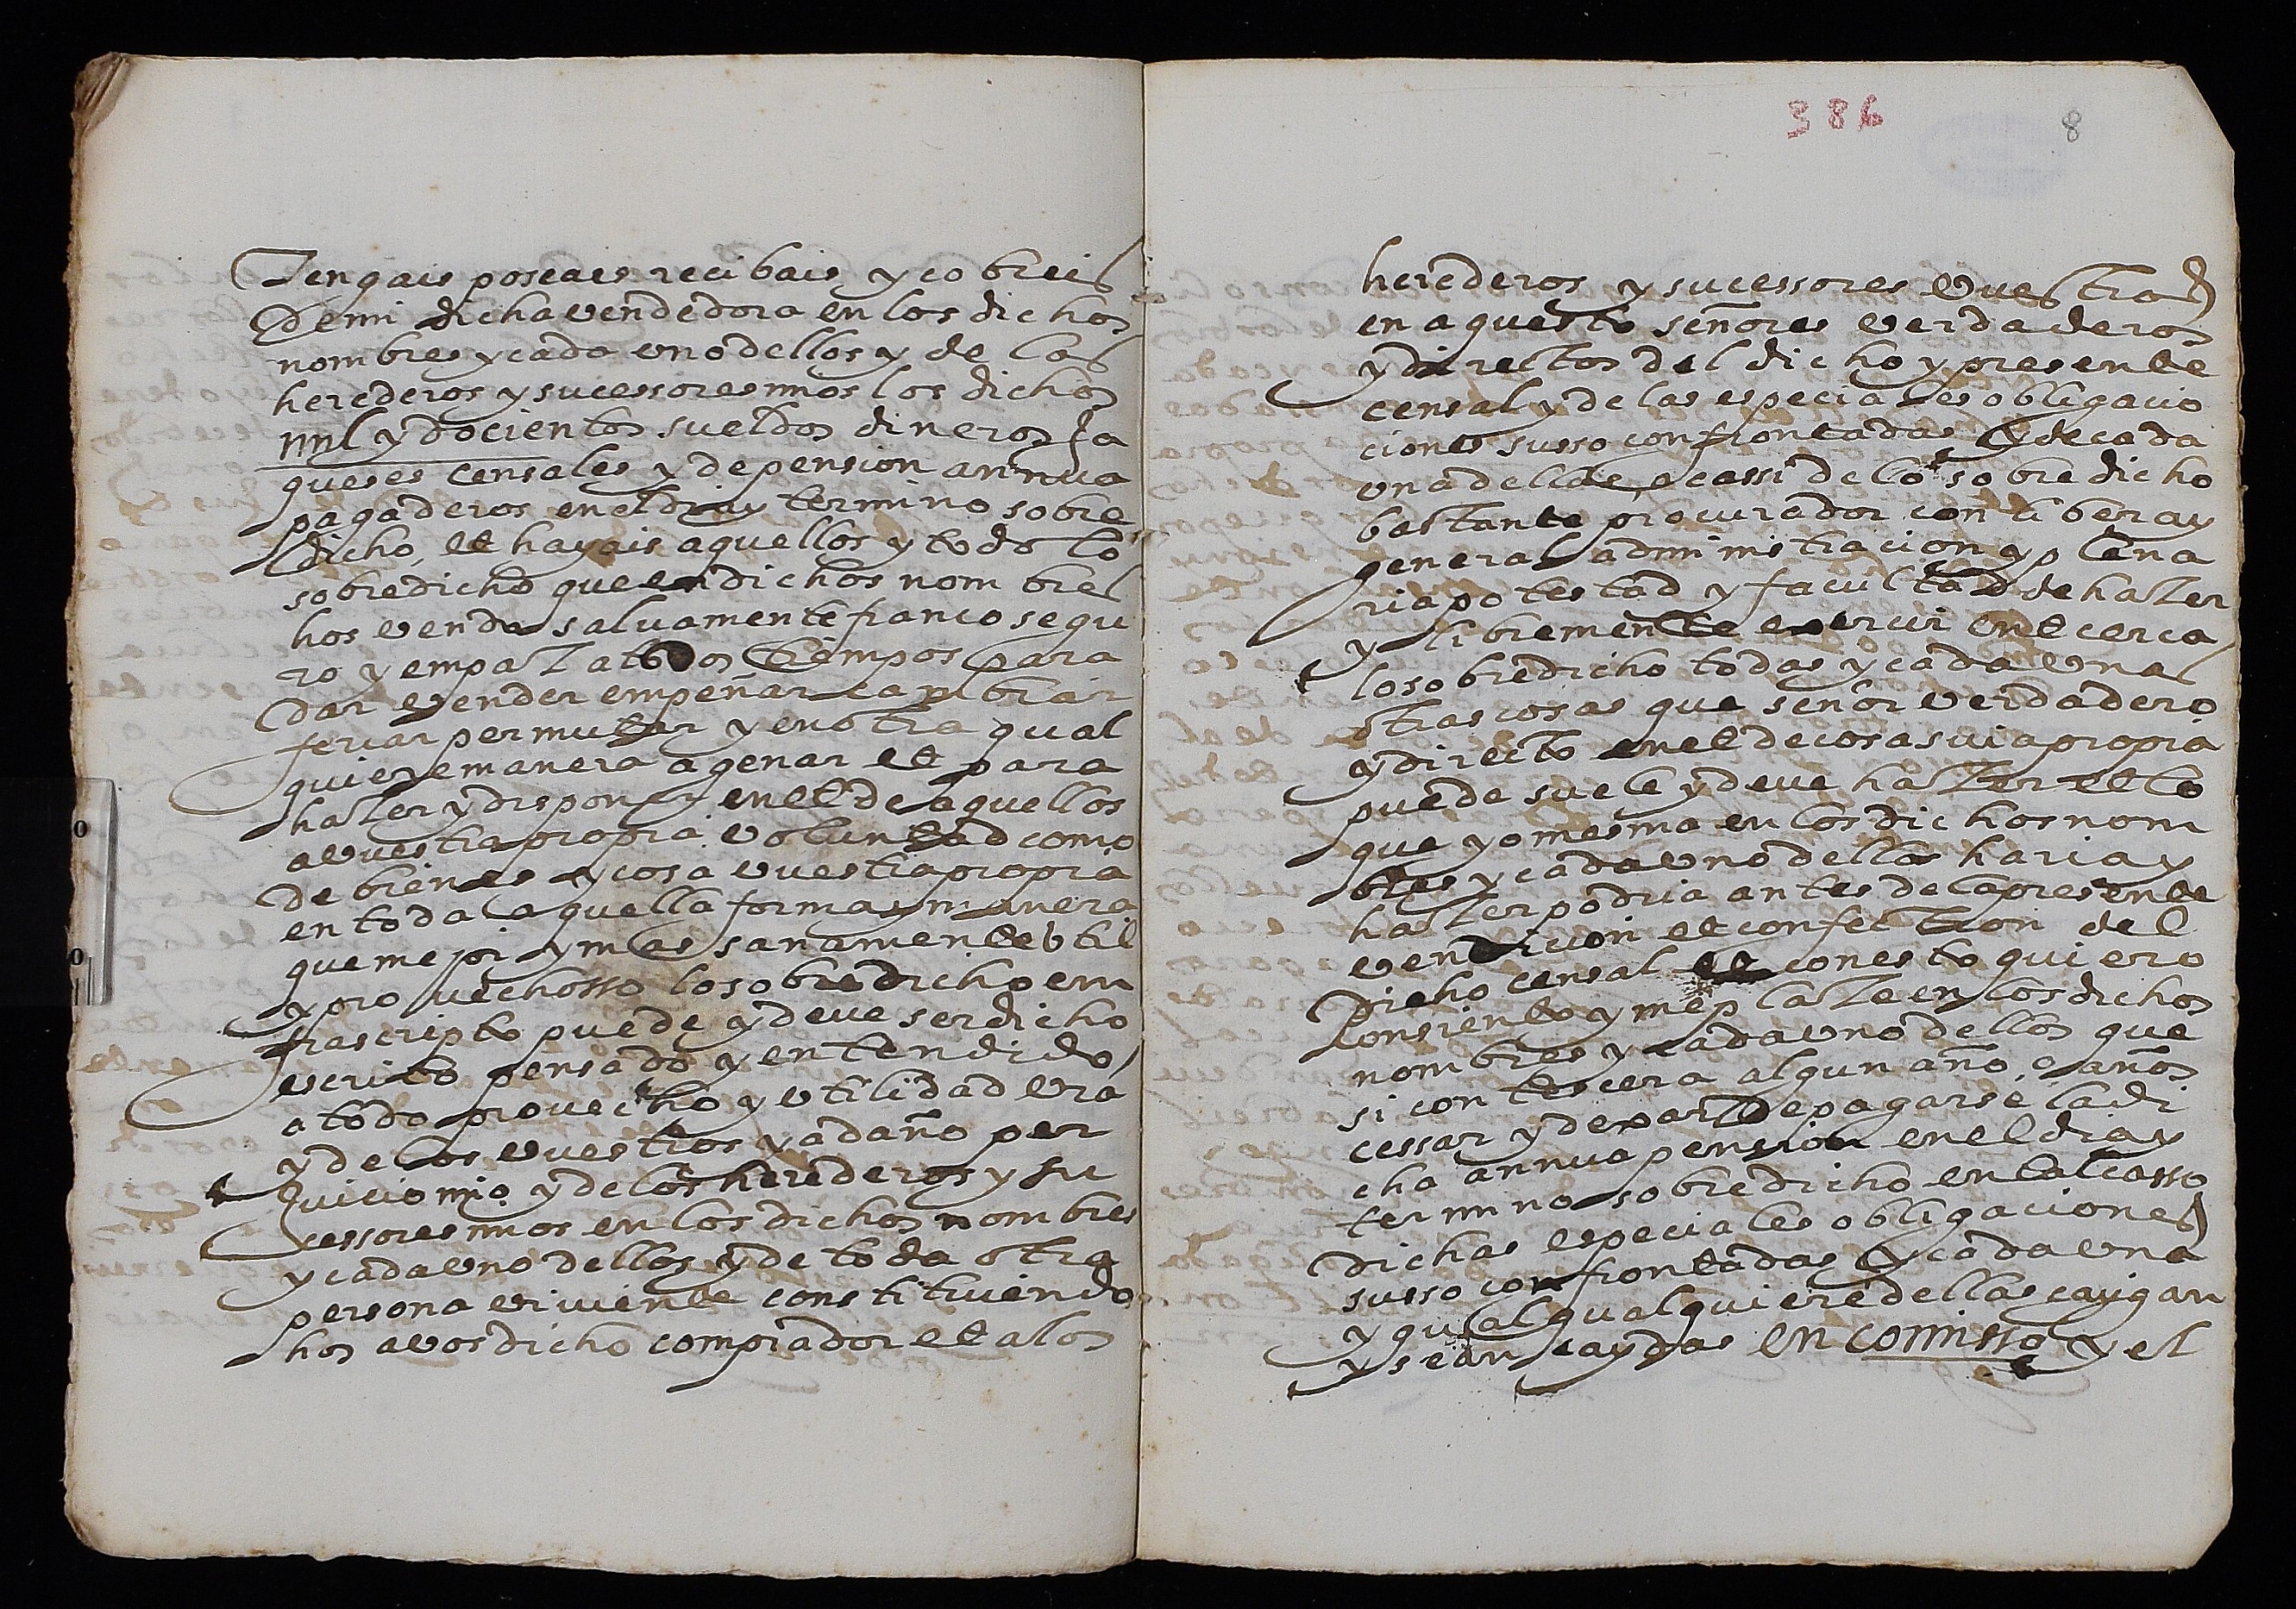 Tengais poseaes recibais y cobreis
De mi dicha vendedora en los dichos
nombres y cada uno dellos y de las
herederos y sucessores mios los dichos
mil y docientos sueldos dineros Ja
queses censales y de pension annua
pagaderos en el dia y termino sobre
dicho, et hayais aquellos y todo lo
sobredicho que en dichos nombres
hos vendo salvamente franco segu
ro y em paz a todos tiempos para
dar vender empeñar cambiar
feriar permutar y en otra qual
quiere manera agenar et para
hazer y disponer en el de aquellos
a vuestra propria voluntad como
De bienes y cosa vuestra propria
en toda aquella forma y manera
que mejor y mas sanamente util
y provechosso lo sobredicho em
frascripto puede y deve ser dicho
escrito pensado y entendido
a todo provecho y utilidad vra
y de los vuestros y a daño per
Juicio mio y de los herederos y su
cessores mios en los dichos nombres
y cada uno dellos y de toda otra
persona viviente constituiendo
hos a vos dicho comprador et a los
386
8
herederos y sucessores vuestros
en aquesto señores verdaderos
y directos del dicho y presente
censal y de las especiales obligacio
ciones susso confrontadas y de cada
una dellas e cassi de lo sobredicho
bastante procurador con libera y
general administracion y plena
ria potestad y facultad de hazer
y libremente exercir en et cerca
lo sobredicho todas y cada unas
otras cosas que señor verdadero
y directo en el de cosa suia propria
puede suele y deve hazer et lo
que yo mesma en los dichos nom
bres y cada uno dellos haria y
hazer podria antes de la presente
vendicion et confection del
Dicho censal et con esto quiero
consiento y me plaze en los dichos
nombres y cada uno dellos que
si contescera algun año, o años
cessar y dexar de pagarse la di
cha annua pension en el dia y
termino sobredicho en tal casso
Dichas especiales obligaciones
susso confrontadas y cada una
y qual qualquiere dellas caygan
y sean caydas en comisso y el